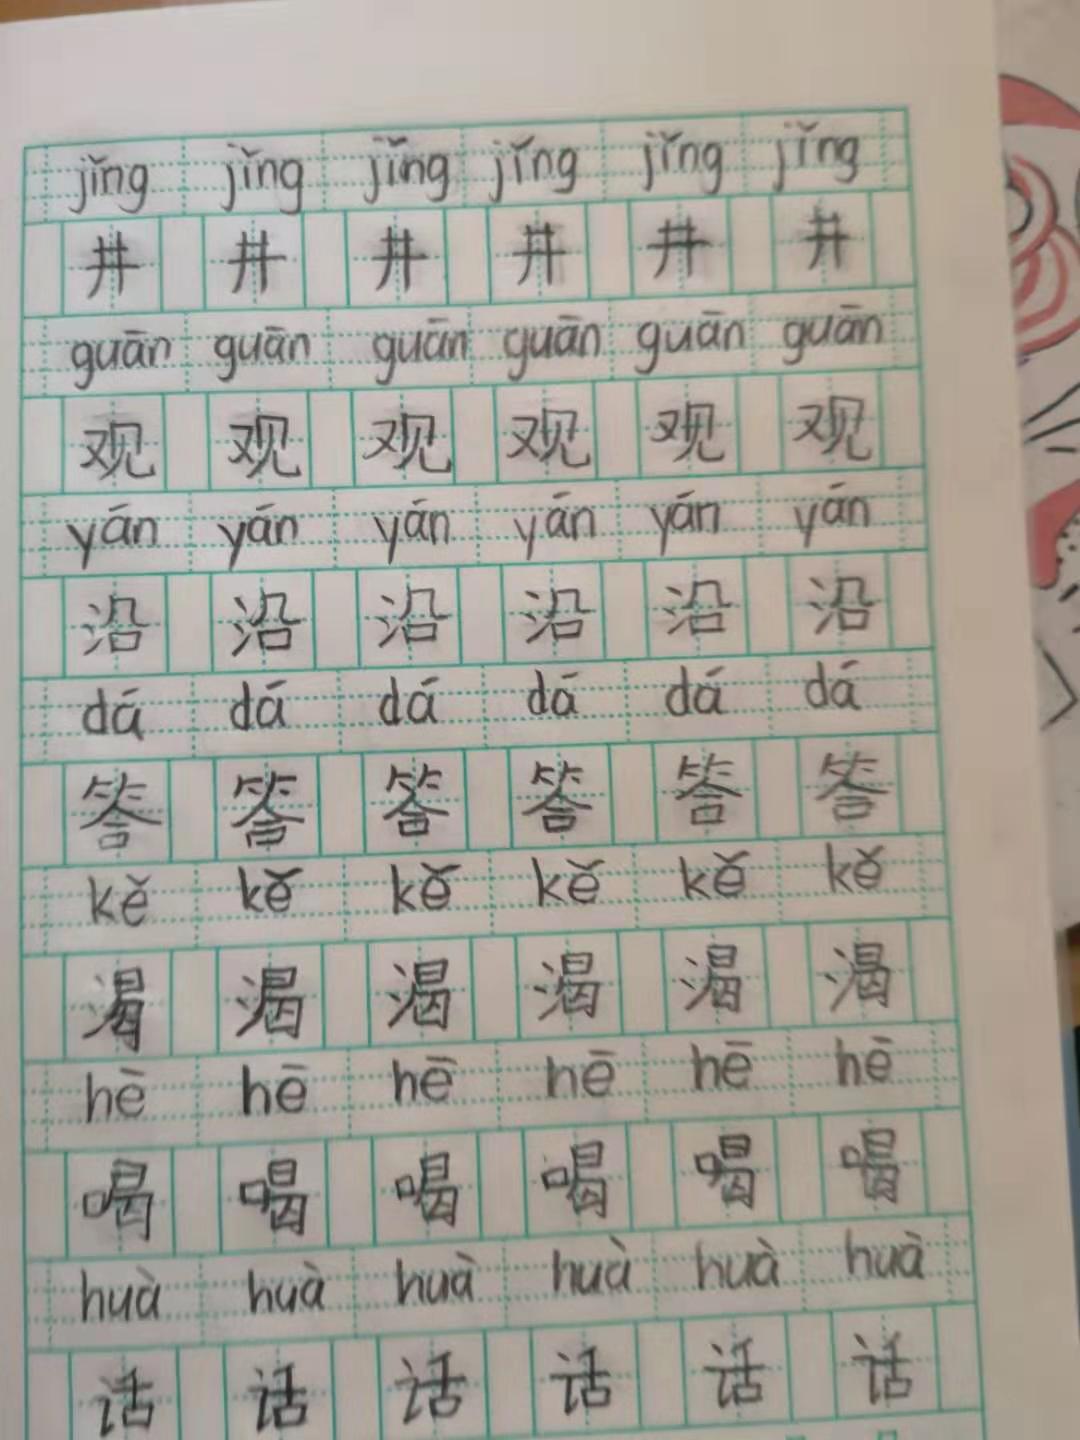 jǐng jǐng jǐng jǐng jǐng jǐng
井 井 井 井 井 井
guān guān guān guān guān guān
观 观 观 观 观 观
yán yán yán yán yán yán
沿 沿 沿 沿 沿 沿
dá dá dá dá dá dá
答 答 答 答 答 答
kě kě kě kě kě kě
渴 渴 渴 渴 渴 渴
hē hē hē hē hē hē
喝 喝 喝 喝 喝 喝
huà huà huà huà huà huà
话 话 话 话 话 话